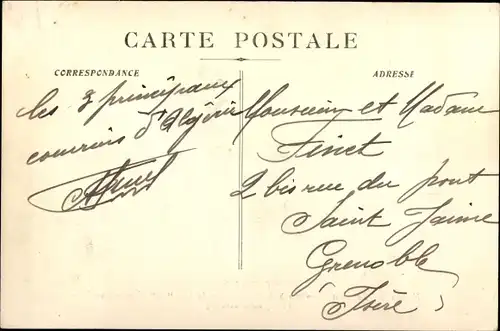 CARTE POSTALE
CORRESPONDANCE
ADRESSE
les 3 principaux
courriers d'Algérie
Monsieur et Madame
Finet
2 bis rue du pont
Saint Jaime
Grenoble
(Isère)